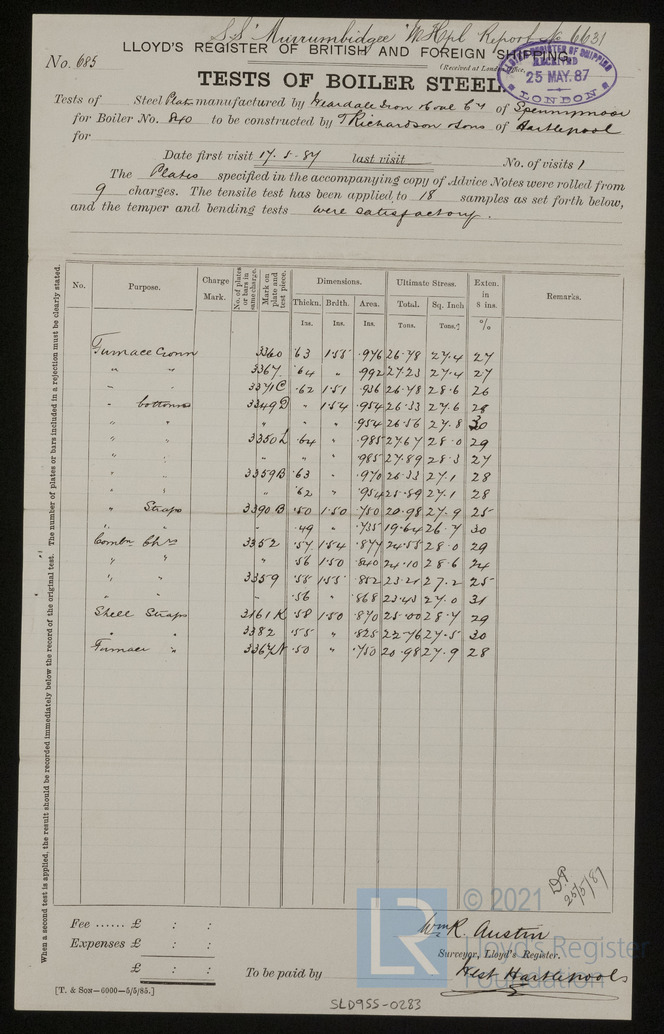 S.S. "Murrumbidgee" W Hpl Report No 6631
LLOYD'S REGISTER OF BRITISH AND FOREIGN SHIPPING.
No. 685
(Received at London Office
25 MAY. 87
LONDON
TESTS OF BOILER STEEL.
Tests of Steel Plates manufactured by Weardale Iron & Coal Co of Spennymoor
for Boiler No. 840 to be constructed by T Richardson & Sons of Hartlepool
for
Date first visit 17.5.87 last visit No. of visits 1
The Plates specified in the accompanying copy of Advice Notes were rolled from
9 charges. The tensile test has been applied to 18 samples as set forth below,
and the temper and bending tests were satisfactory.
When a second test is applied, the result should be recorded immediately below the record of the original test. The number of plates or bars included in a rejection must be clearly stated.
No. Purpose. Charge Mark. No. of plates or bars in same charge. Mark on plate and test piece. Dimensions. Ultimate Stress. Exten. in 8 ins. Remarks.
Thickn. Brdth. Area. Total. Sq. Inch
Ins. Ins. Ins. Tons. Tons. %
Furnace Crown 3360 .63 1.55 .976 26.78 27.4 27
" " 3367 .64 " .992 27.23 27.4 27
" " 3371C .62 1.51 .936 26.78 28.6 26
" bottoms 3349D " 1.54 .954 26.33 27.6 28
" " " " " .954 26.56 27.8 30
" " 3350L .64 " .985 27.67 28.0 29
" " " " " .985 27.89 28.3 27
" " 3359B .63 " .970 26.33 27.1 28
" " " .62 " .954 25.89 27.1 28
" Straps 3390B .50 1.50 .750 20.98 27.9 25
" " " .49 " .735 19.64 26.7 30
Combn Chrs 3352 .57 1.54 .877 24.55 28.0 29
" " " .56 1.50 .840 24.10 28.6 24
" " 3359 .55 1.55 .852 23.21 27.2 25
" .56 " .868 23.43 27.0 31
Shell Straps 3161K .58 1.50 .870 25.00 28.7 29
" " 3382 .55 " .825 22.76 27.5 30
Furnace " 3367N .50 " .750 20.98 27.9 28
D.P
25/5/87
© 2021
LR
Lloyd's Register
Foundation
Fee ...... £ : :
Expenses £ : :
£ : :
Wm R. Austin
Surveyor, Lloyd's Register.
To be paid by
West Hartlepool
[T. & Son—6000—5/5/85.]
SLD955-0283